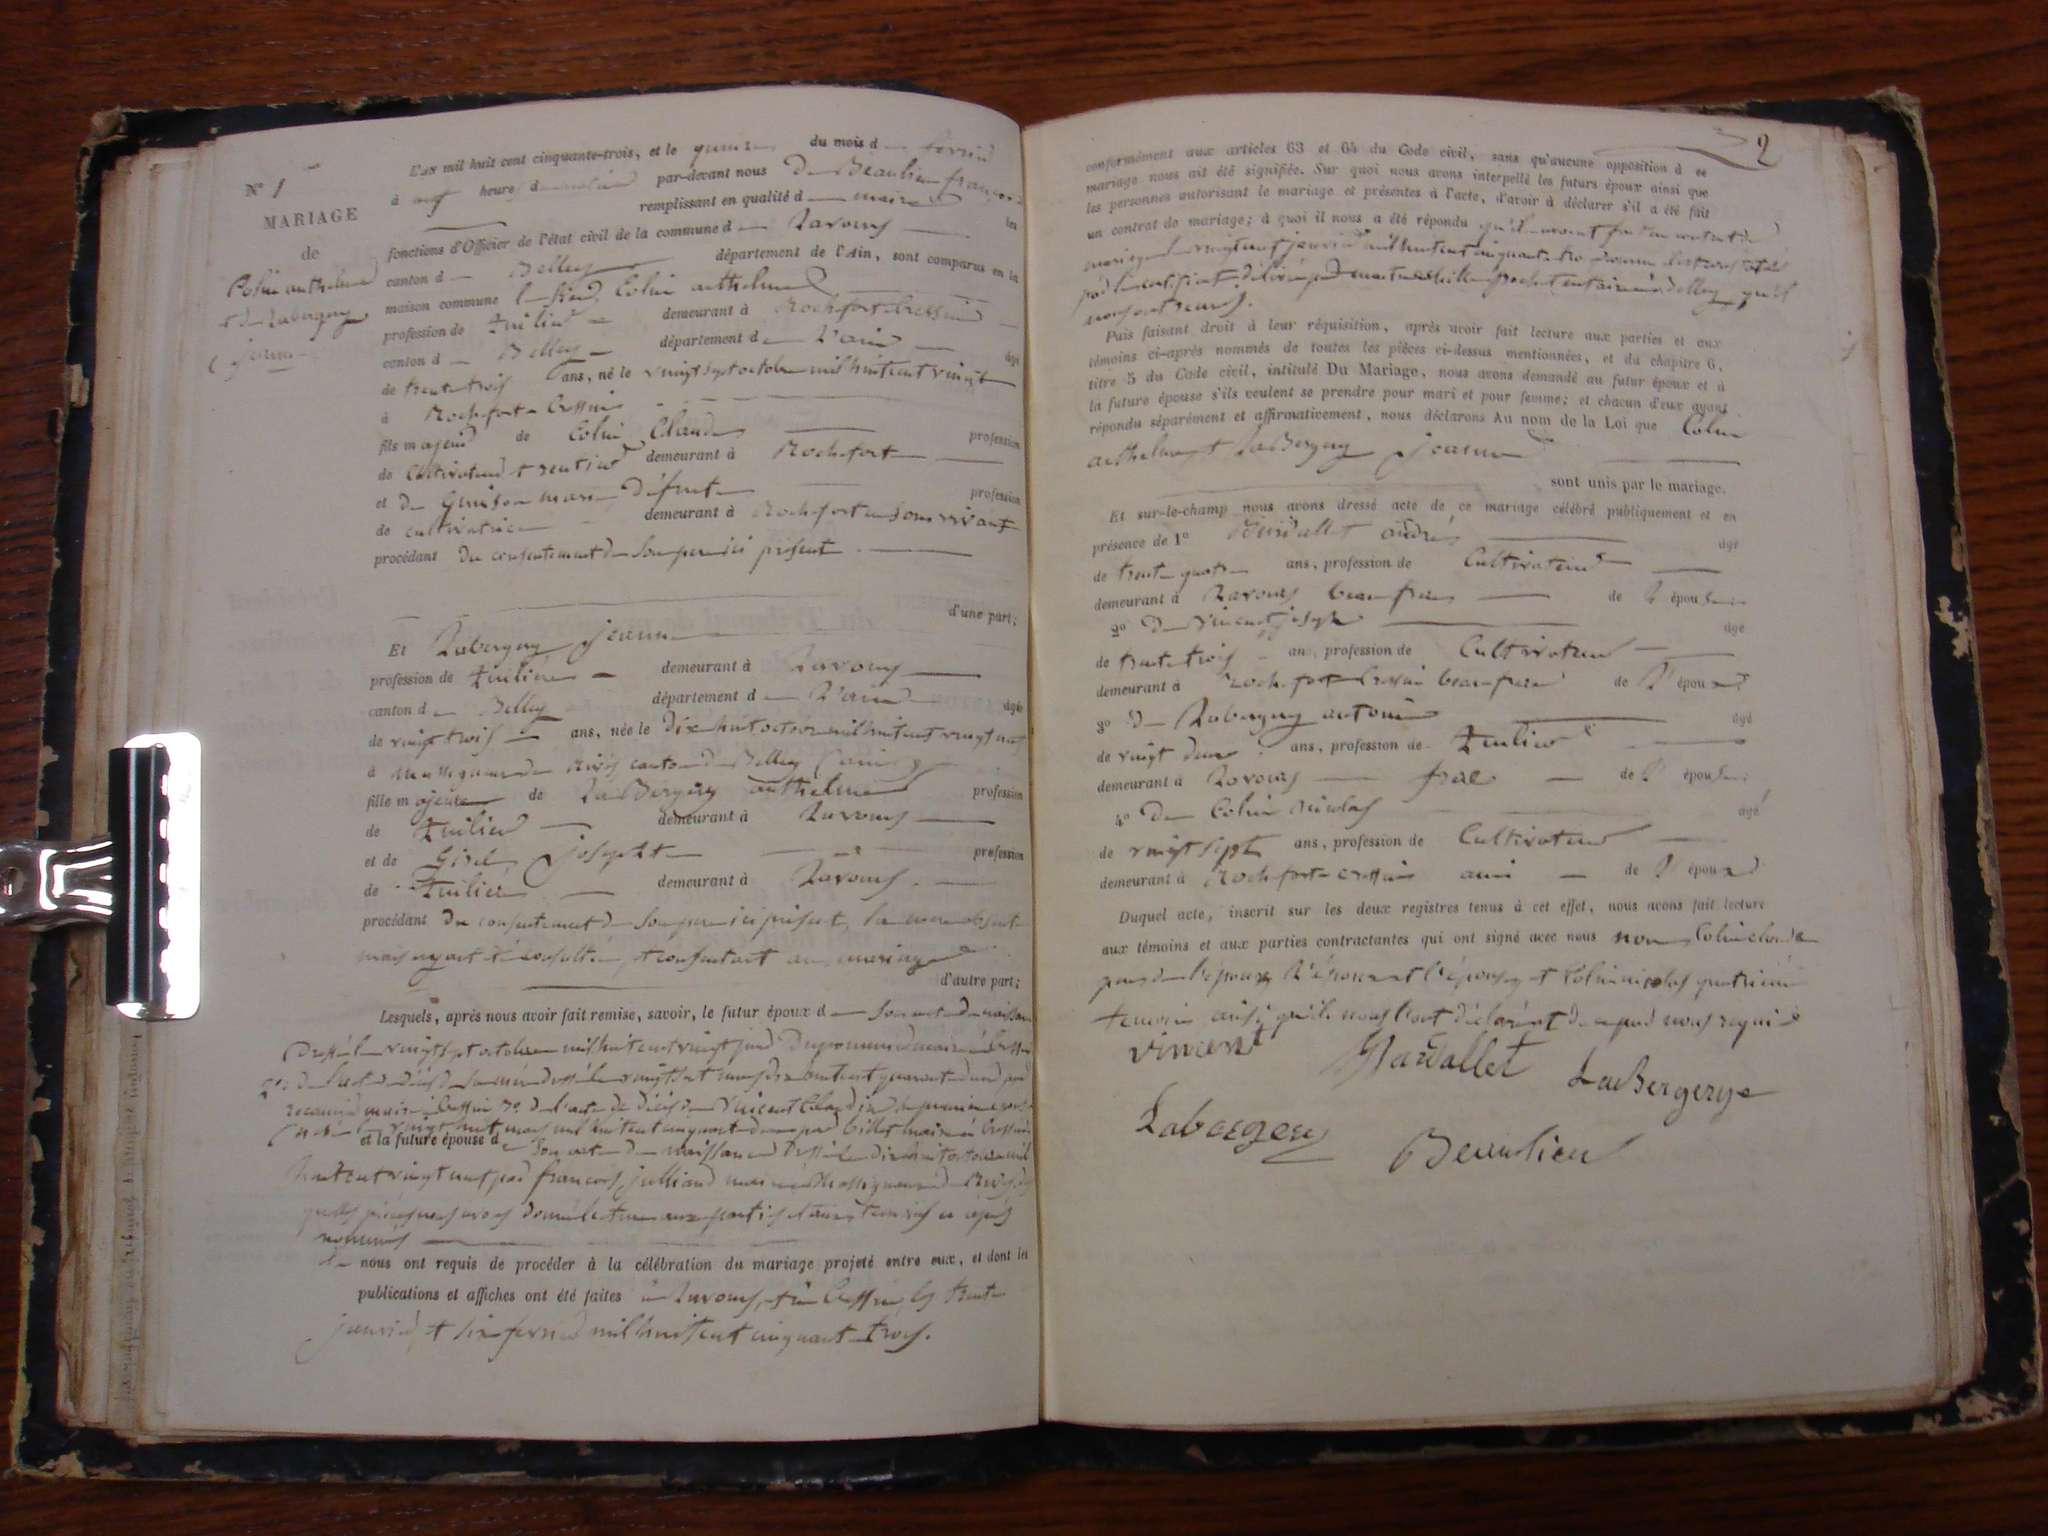 N° 1
MARIAGE
de
Colin anthelme
et de Labergery
jeanne
L'an mil huit cent cinquante-trois, et le quinze du mois de fevrier
à neuf heures du matin par-devant nous De Beaulieu françois
remplissant en qualité de maire les
fonctions d'Officier de l'état civil de la commune de Lavours
canton de Belley département de l'Ain, sont comparus en la
maison commune le sieur Colin anthelme
profession de tuilier demeurant à Rochefort Cressin
canton de Belley département de L'ain âgé
de trente trois ans, né le vingt sept octobre mil huit cent vingt
à Rochefort Cressin
fils majeur de Colin Claude profession
de Cultivateur et rentier demeurant à Rochefort
et de marie Défunte profession
de cultivatrice demeurant à Rochefort en son vivant
procédant du consentement de son pere ici présent
d'une part;
Et Labergery jeanne
profession de tuilière demeurant à Lavours
canton de Belley département de L'ain âgée
de vingt trois ans, née le dix huit octobre mil huit cent vingt neuf
à Massigneux de Rives canton de Belley (ain)
fille majeure de LaBergery anthelme profession
de tuilier demeurant à Lavours
et de josephte profession
de tuilière demeurant à Lavours
procédant du consentement de son pere ici présent, la mere absente
mais ayant été consultée, et consentant au mariage
d'autre part;
Lesquels, après nous avoir fait remise, savoir, le futur époux de son acte de naissance
Dressé le vingt sept octobre mil huit cent vingt par maire à Cressin
2° de l'acte de décès de sa mère dressé le mil huit cent quarante deux par
maire à Cressin 3° de l'acte de décès de Vincent
vingt huit mars mil huit cent cinquante deux par Billet maire à Cressin
et la future épouse de son acte de naissance Dressé le dix huit octobre mil
huit cent vingt neuf par françois julliand maire à Massigneux de Rives
quelles pièces nous avons donné lecture aux parties et aux temoins ci après
nommés
nous ont requis de procéder à la célébration du mariage projeté entre eux, et dont les
publications et affiches ont été faites à Lavours, et à Cressin, les trente
janvier et six fevrier mil huit cent cinquante trois.
2
conformément aux articles 63 et 64 du Code civil, sans qu'aucune opposition à ce
mariage nous ait été signifiée. Sur quoi nous avons interpellé les futurs époux ainsi que
les personnes autorisant le mariage et présentes à l'acte, d'avoir à déclarer s'il a été fait
un contrat de mariage; à quoi il nous a été répondu qu'ils avaient fait un contrat de
mariage le vingt neuf janvier mil huit cent cinquante trois
par le certificat délivré par notaire à Belley qu'ils
nous ont remis.
Puis faisant droit à leur réquisition, après avoir fait lecture aux parties et aux
témoins ci-après nommés de toutes les pièces ci-dessus mentionnées, et du chapitre 6,
titre 5 du Code civil, intitulé Du Mariage, nous avons demandé au futur époux et à
la future épouse s'ils veulent se prendre pour mari et pour femme; et chacun d'eux ayant
répondu séparément et affirmativement, nous déclarons Au nom de la Loi que Colin
anthelme et LaBergery jeanne
sont unis par le mariage.
Et sur-le-champ nous avons dressé acte de ce mariage célébré publiquement et en
présence de 1° andré âgé
de trente quatre ans, profession de Cultivateur
demeurant à Lavours beau frere de L'épouse
2° De Vincent joseph âgé
de trente trois ans, profession de Cultivateur
demeurant à Rochefort Cressin beau frere de L'époux
3° De Labergery antoine âgé
de vingt deux ans, profession de tuilier
demeurant à Lavours frere de L'épouse
4° De Colin nicolas âgé
de vingt sept ans, profession de Cultivateur
demeurant à Rochefort Cressin ami de L'époux
Duquel acte, inscrit sur les deux registres tenus à cet effet, nous avons fait lecture
aux témoins et aux parties contractantes qui ont signé avec nous non Colin claude
pere de l'époux L'époux et l'épouse, et Colin nicolas quatrième
temoin ainsi qu'ils nous l'ont déclaré de ce par nous requis
vincent Mardallet LaBergerye
Labergery Beaulieu